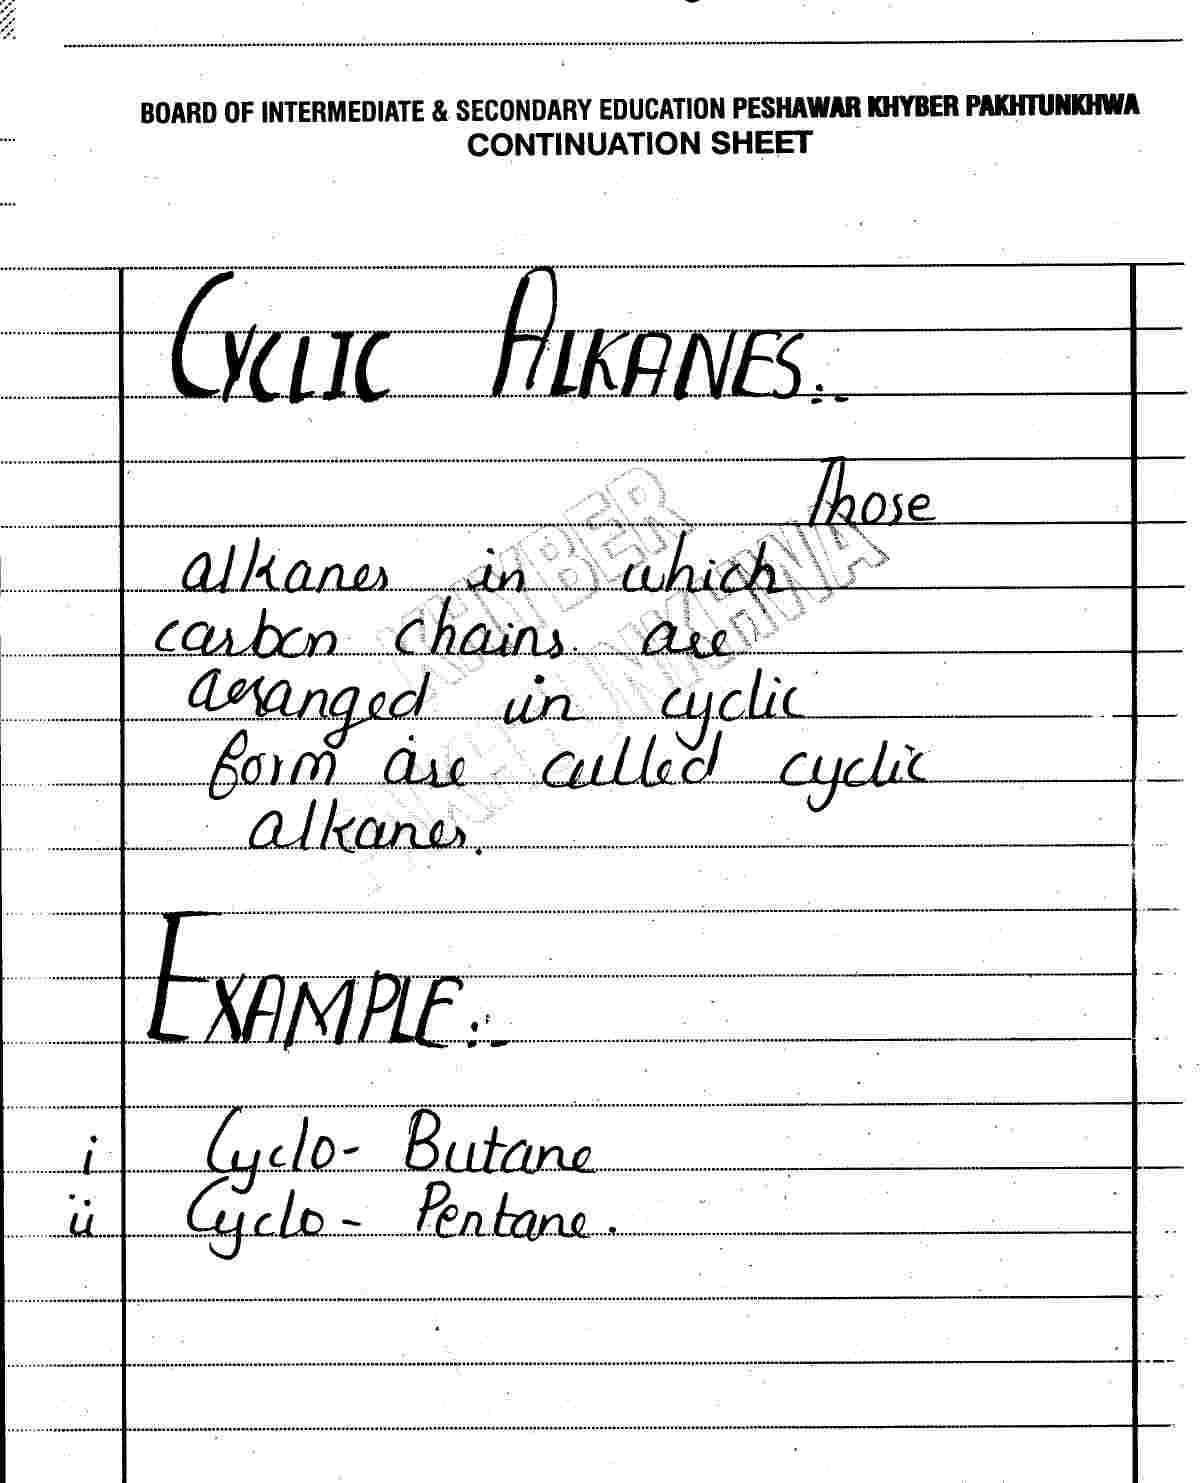 BOARD OF INTERMEDIATE & SECONDARY EDUCATION PESHAWAR KHYBER PAKHTUNKHWA
CONTINUATION SHEET
CYCLIC ALKANES:-
Those
alkanes in which
carbon chains are
arranged in cyclic
form are called cyclic
alkanes.
KHYBER
PAKHTUNKHWA
EXAMPLE:-
i Cyclo- Butane
ii Cyclo - Pentane.